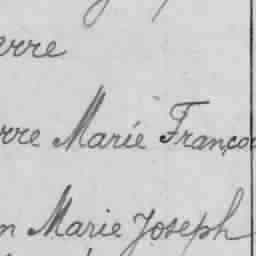 erre
rre Marie Françoi
n Marie Joseph